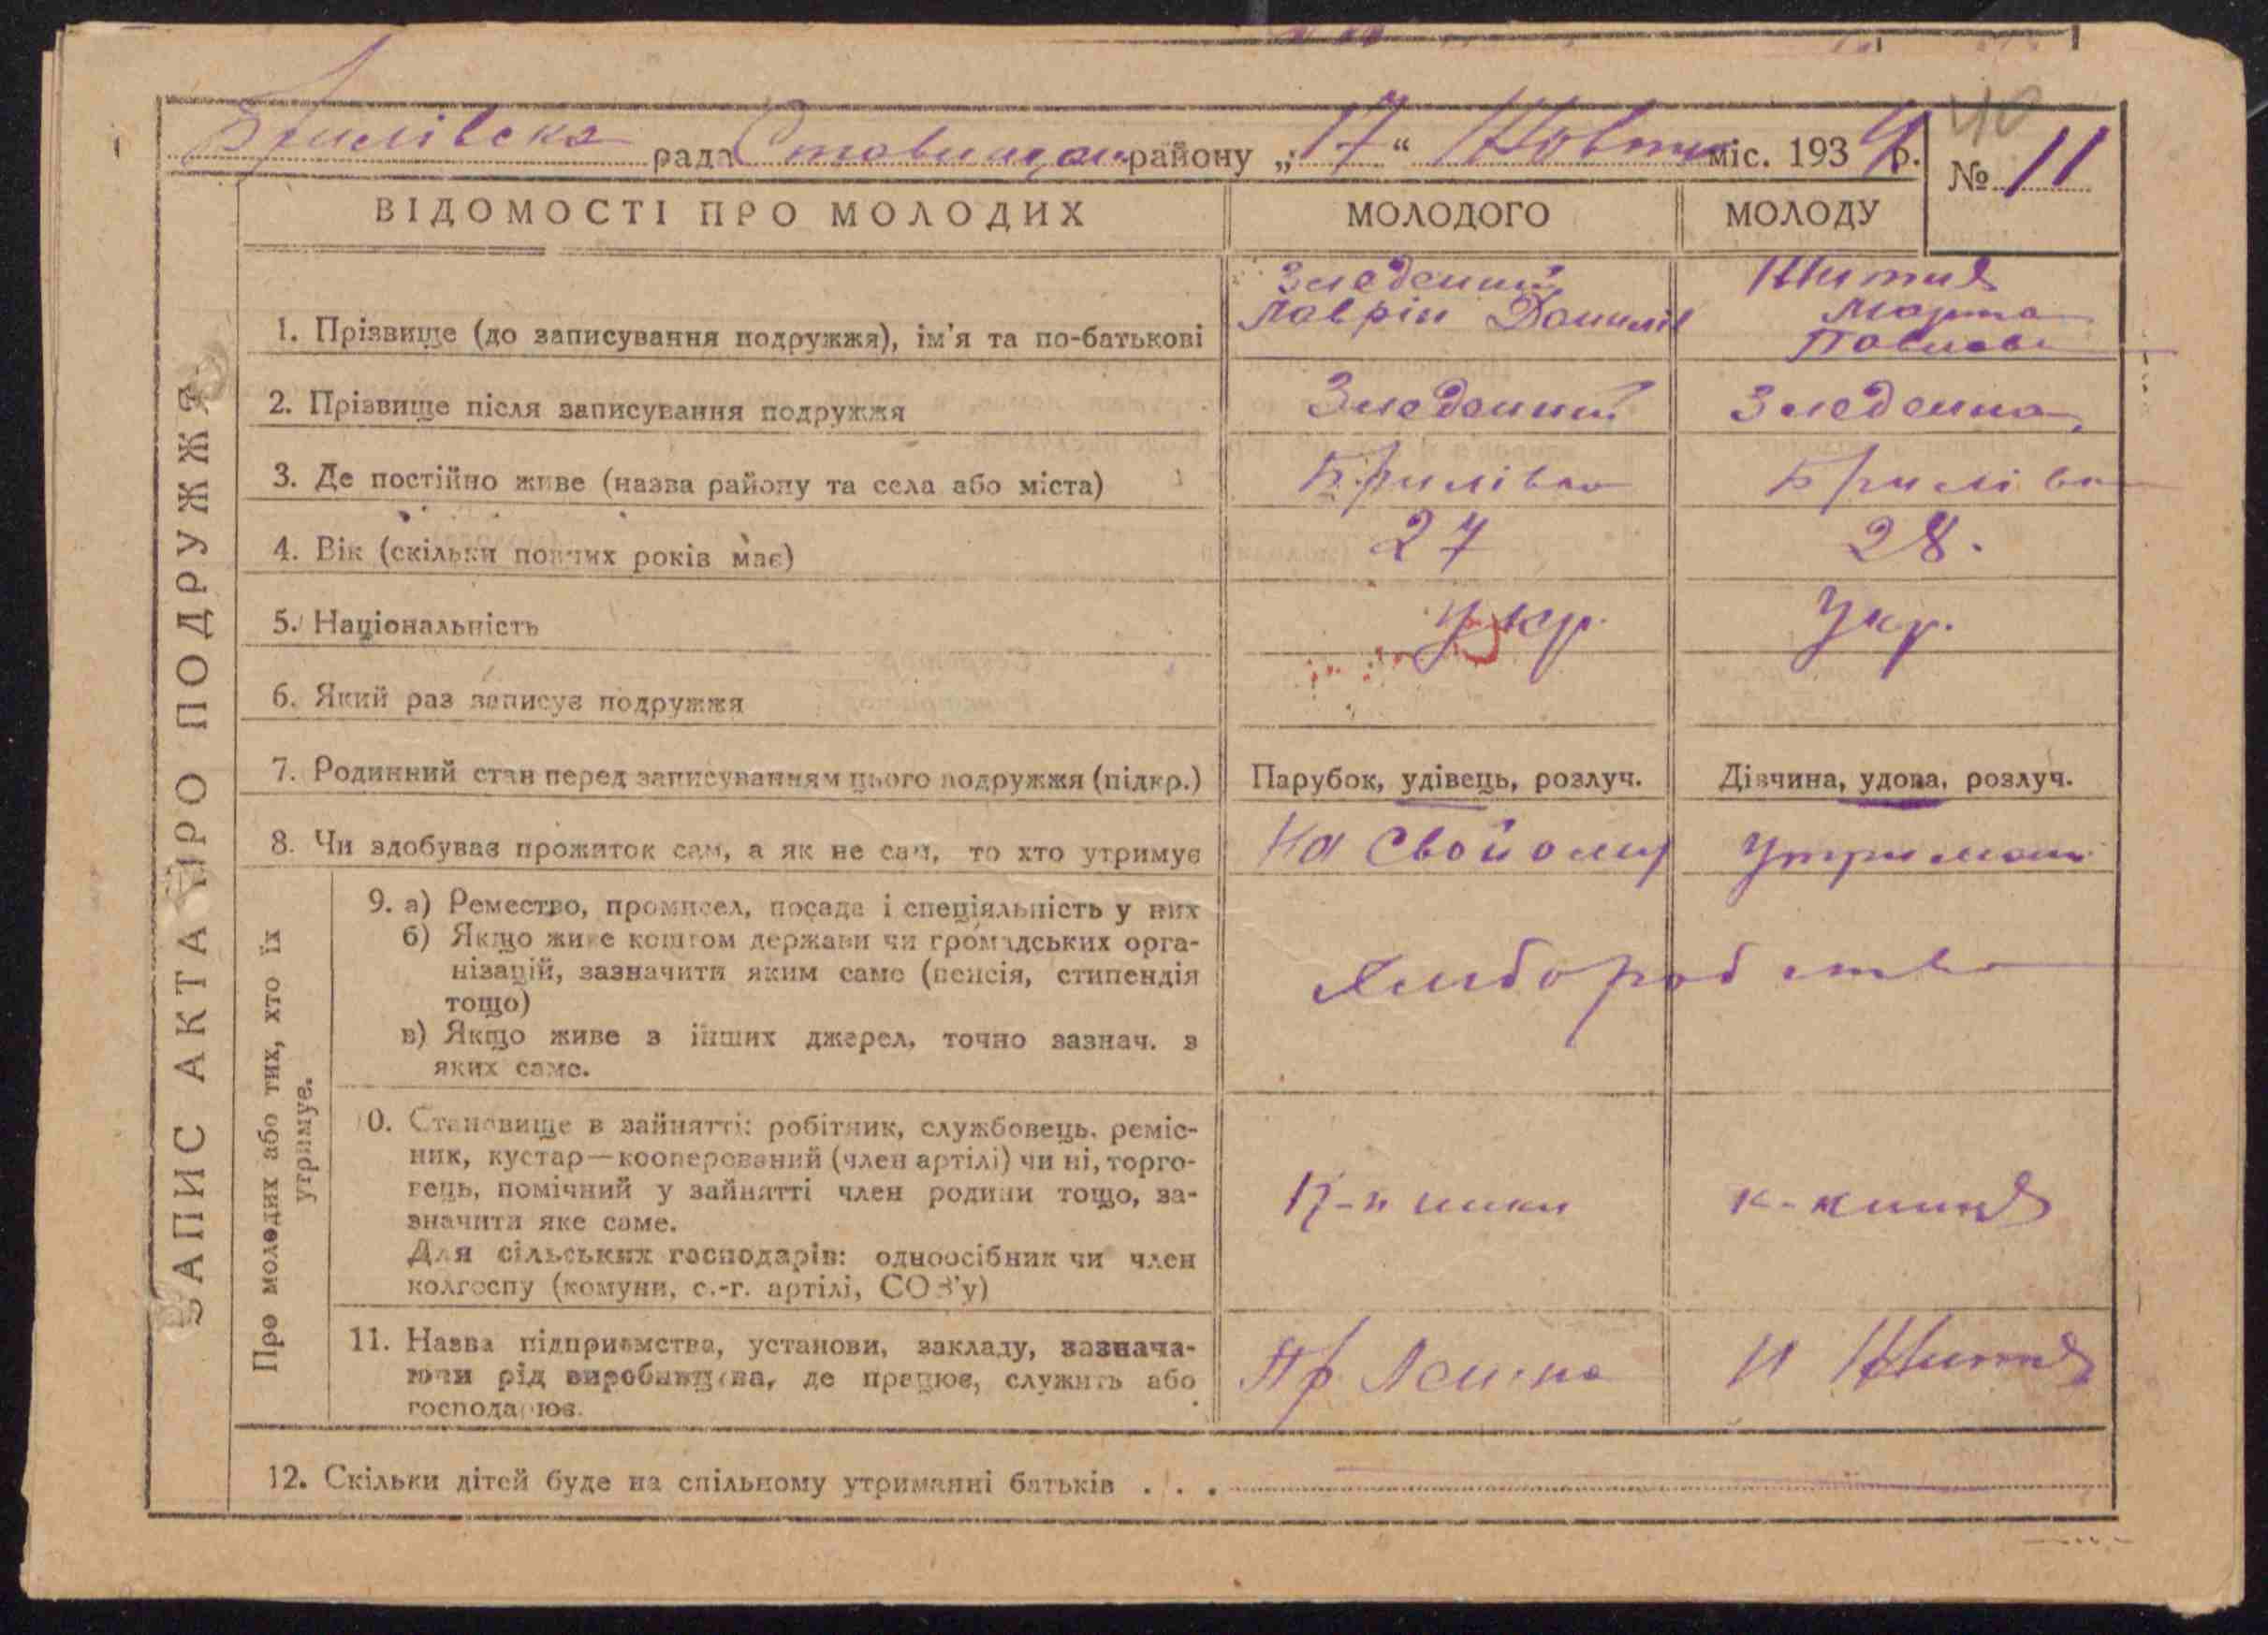 40
Брилівска рада Ставищан району „17“ Жовтня міс. 1934 р. № 11
ВІДОМОСТІ ПРО МОЛОДИХ МОЛОДОГО МОЛОДУ
ЗАПИС АКТА ПРО ПОДРУЖЖЯ
1. Прізвище (до записування подружжя), ім'я та по-батькові
Лаврін Данилів
Марта
Павлова
2. Прізвище після записування подружжя
3. Де постійно живе (назва району та села або міста) Брилівка Брилівка
4. Вік (скільки повних років має) 27 28.
5. Національність Укр. Укр.
6. Який раз записує подружжя
7. Родинний стан перед записуванням цього подружжя (підкр.) Парубок, удівець, розлуч. Дівчина, удова, розлуч.
8. Чи здобував прожиток сам, а як не сам, то хто утримує На свойому утриман
Про молодих або тих, хто їх
утримує.
9. а) Ремество, промисел, посада і спеціяльність у них
б) Якщо живе коштом держави чи громадських орга-
нізацій, зазначити яким саме (пенсія, стипендія
тощо)
в) Якщо живе з інших джерел, точно зазнач. з
яких саме.
Хліборобство
10. Становище в зайнятті: робітник, службовець, реміс-
ник, кустар—кооперований (член артілі) чи ні, торго-
вець, помічний у зайнятті член родини тощо, за-
значити яке саме.
Для сільських господарів: одноосібник чи член
колгоспу (комуни, с.-г. артілі, СОЗ'у)
11. Назва підприємства, установи, закладу, зазнача-
ючи рід виробництва, де працює, служить або
господарює.
12. Скільки дітей буде на спільному утриманні батьків . . .